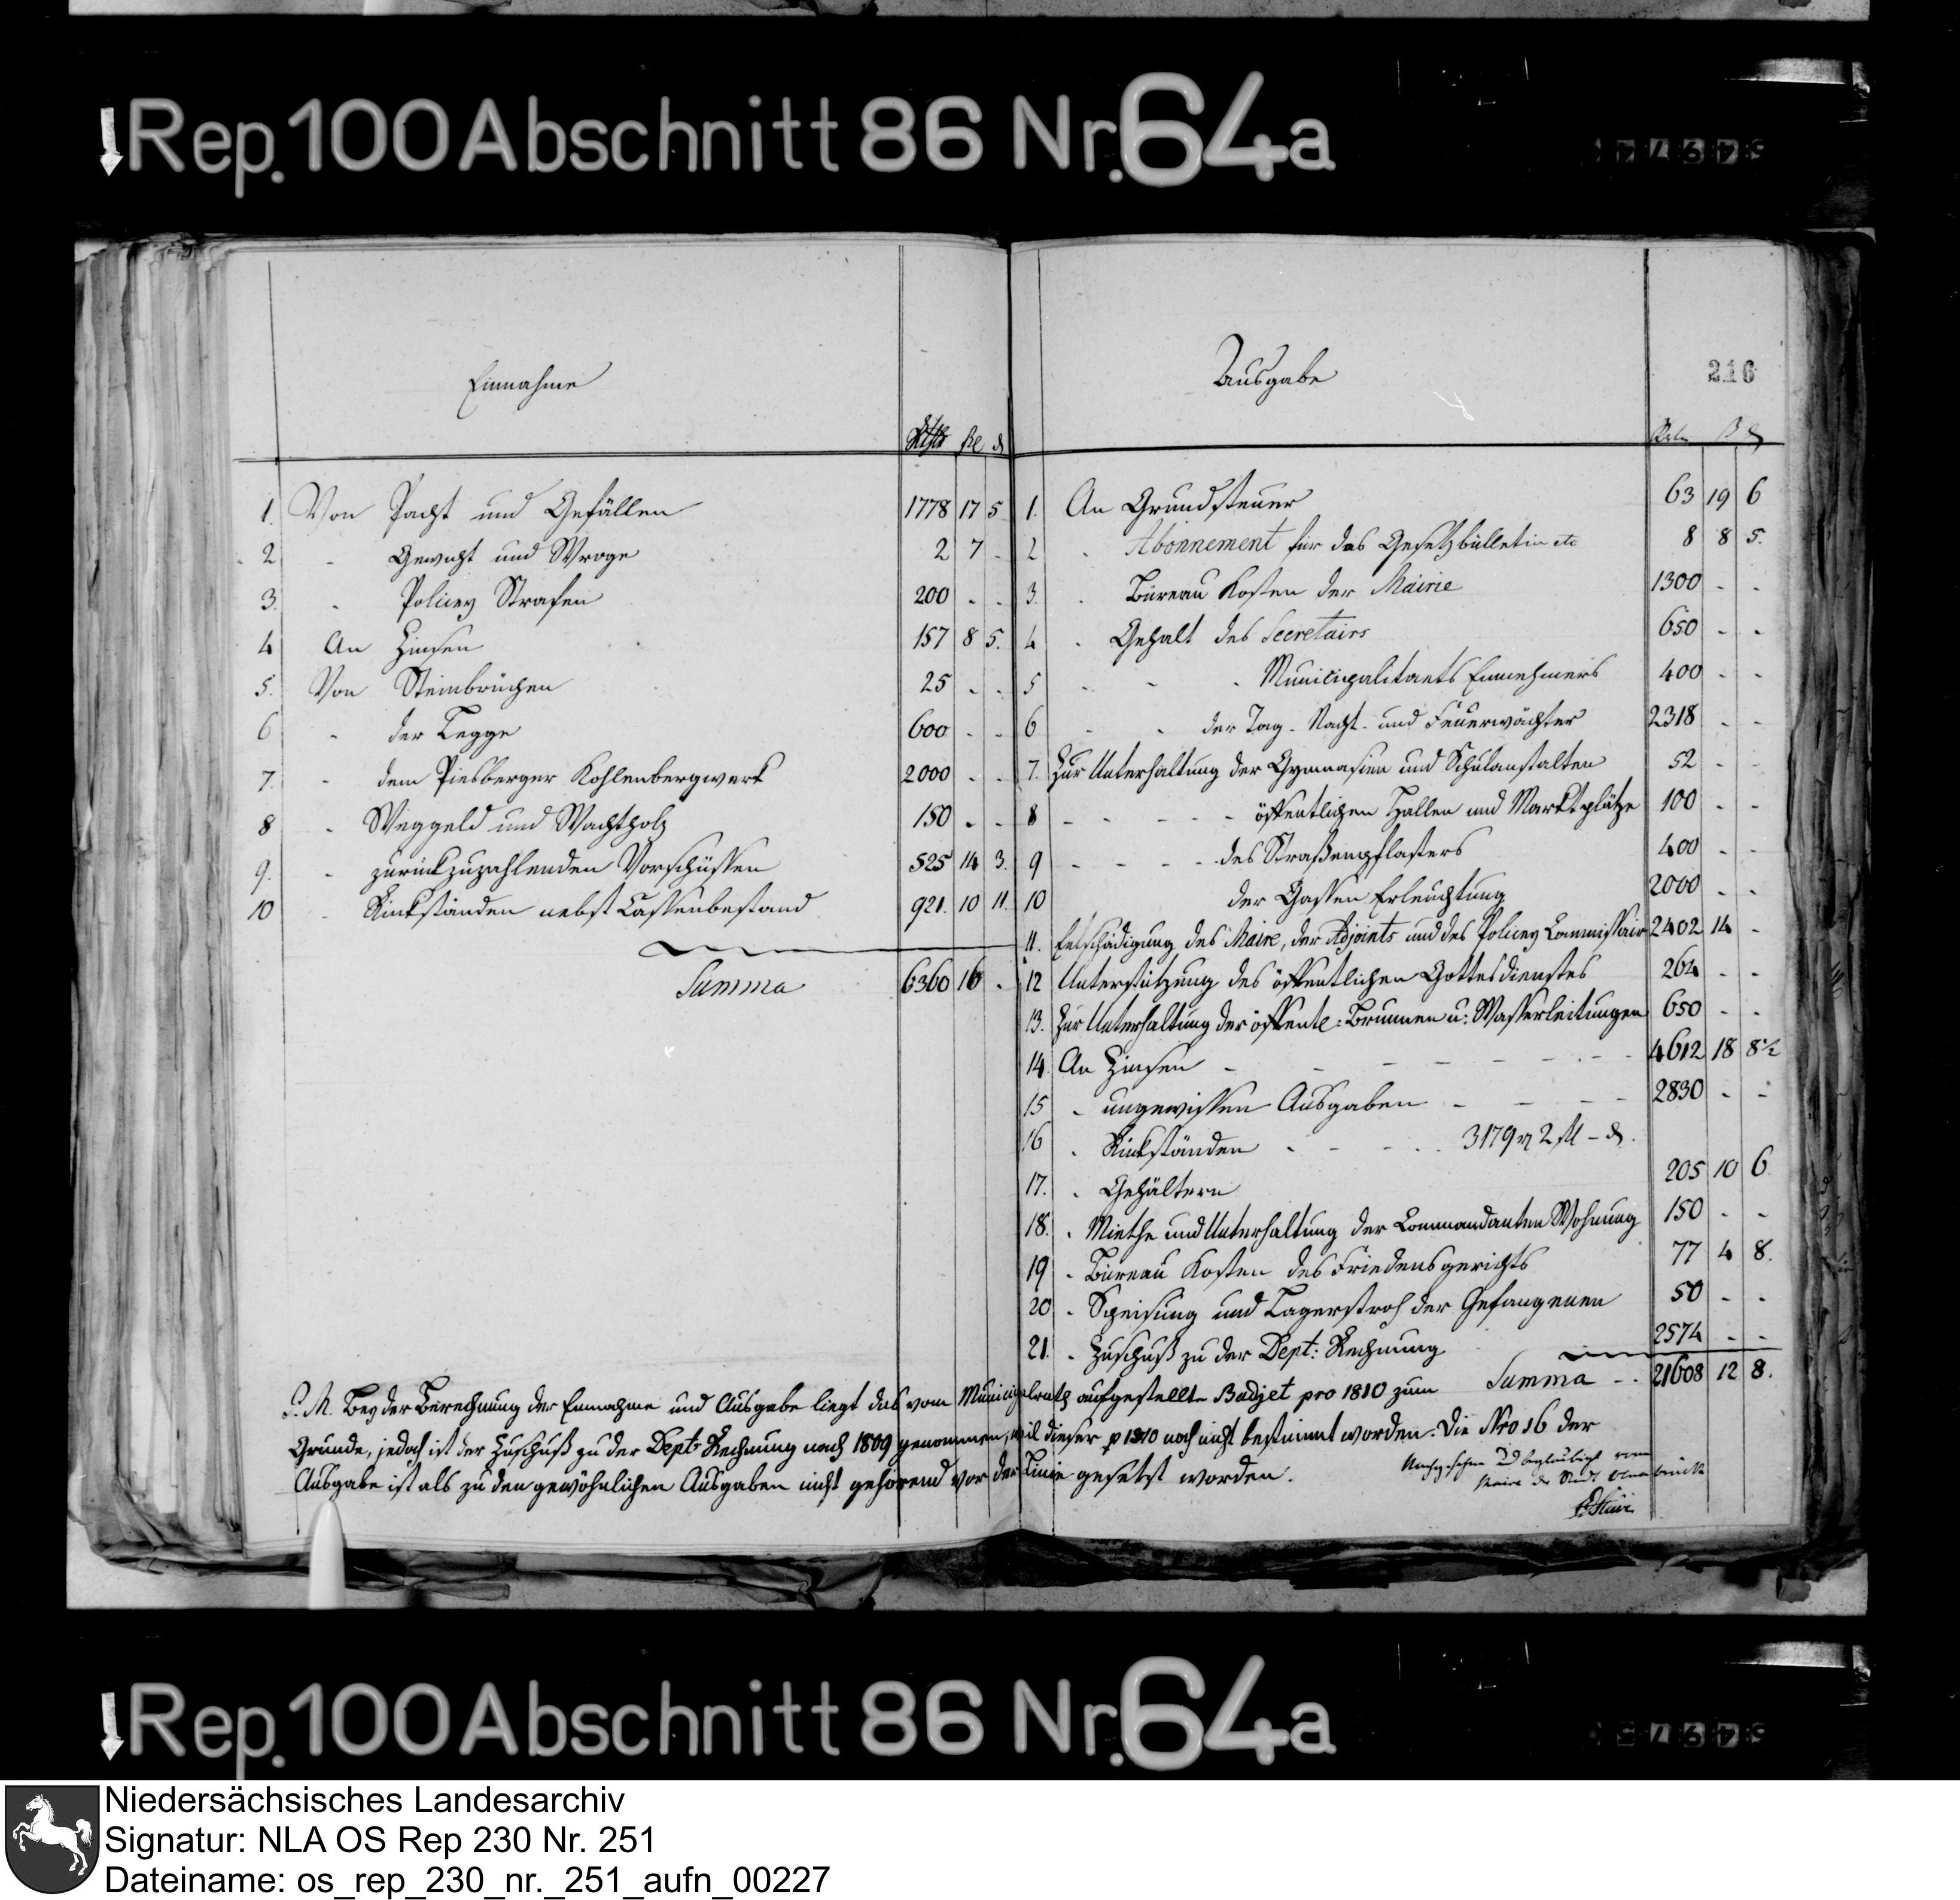 Rep. 100 Abschnitt 86 Nr. 64a
216
Einnahme
Rthlr ßl d
1. Von Pacht und Gefällen 1778 17 5
2 - Gewicht und Wroge 2 7 -
3. - Policey Strafen 200 - -
4 An Zinsen 157 8 5.
5. Von Steinbrüchen 25 - -
6 - der Legge 600 - -
7. - dem Piesberger Kohlenbergwerk 2000 - -
8 - Weggeld und Wachtholz 150 - -
9. - zurückzuzahlenden Vorschüssen 525 14 3.
10 - Rückständen nebst Cassenbestand 921. 10 11.
Summa 6360 16 -
Ausgabe
1. An Grundsteuer 63 19 6
2 - Abonnement für das Gesetzbülletin etc 8 8 5.
3. - Büreau Kosten der Mairie 1300 - -
4 - Gehalt des Secretairs 650 - -
5 - - - Municipalitaets Einnehmers 400 - -
6 - - der Tag- Nacht- und Feuerwächter 2318 - -
7. Zur Unterhaltung der Gymnasien und Schulanstalten 52 - -
8 - - - - - öffentlichen Hallen und Marktplätze 100 - -
9 - - - - des Straßenpflasters 400 - -
10 der Gassen Erleuchtung 2000 - -
11. Entschädigung des Maire, der Adjoints und des Policey Commissair 2402 14 -
12 Unterstützung des öffentlichen Gottesdienstes 264 - -
13. Zur Unterhaltung der öffentl: Brunnen u: Wasserleitungen 650 - -
14. An Zinsen - - - - - - 4612 18 8½
15 - ungewissen Ausgaben - - - - 2830 - -
16 - Rückständen - - - - 3179 rt 2 ßl - d.
17. - Gehältern 205 10 6.
18. - Miethe und Unterhaltung der Commandanten Wohnung 150 - -
19 - Büreau Kosten des Friedensgerichts 77 4 8.
20 - Speisung und Lagerstroh der Gefangenen 50 - -
21. - Zuschuß zu der Dept: Rechnung 2574 - -
Summa - - 21608 12 8.
P. M. Bey der Berechnung der Einnahme und Ausgabe liegt das vom Municipalrath aufgestellte Budjet pro 1810 zum
Grunde, jedoch ist der Zuschuß zu der Dept: Rechnung nach 1809 genommen, weil dieser p 1810 noch nicht bestimmt worden. Die Nro 16 der
Ausgabe ist als zu den gewöhnlichen Ausgaben nicht gehörend vor der Linie gesetzt worden.
Nachgesehen und beglaubigt vom
Maire der Stadt Osnabrück
Stüve
Rep. 100 Abschnitt 86 Nr. 64a
Niedersächsisches Landesarchiv
Signatur: NLA OS Rep 230 Nr. 251
Dateiname: os_rep_230_nr._251_aufn_00227